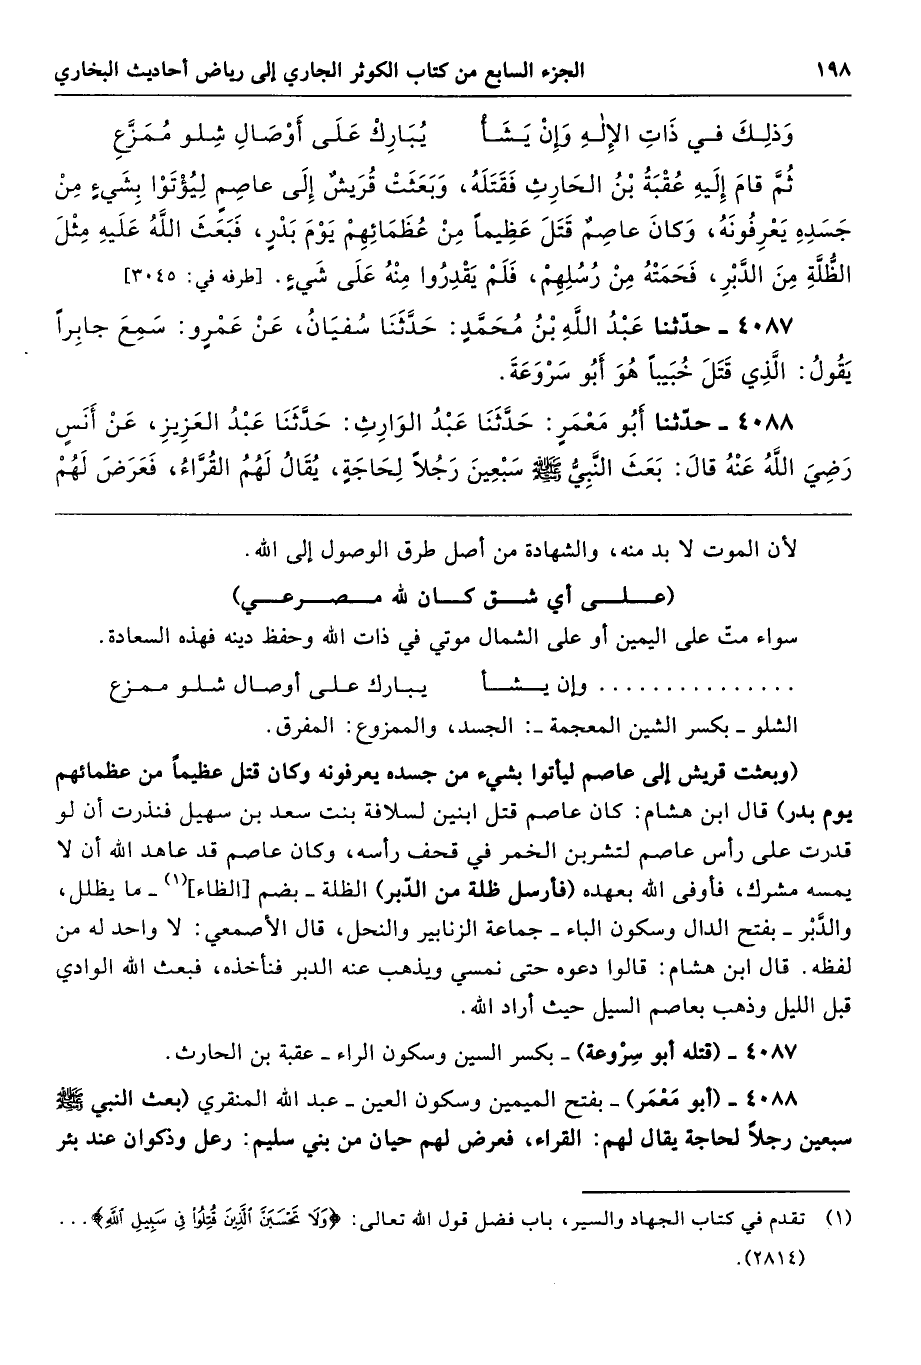 ١٩٨ الجزء السابع من كتاب الكوثر الجاري إلى رياض أحاديث البخاري
وَذلِكَ فِي ذَاتِ الإِلٰهِ وَإِنْ يَشَأْ يُبَارِكْ عَلَى أَوْصَالِ شِلوٍ مُمَزَّعِ
ثُمَّ قامَ إِلَيهِ عُقْبَةُ بْنُ الحَارِثِ فَقَتَلَهُ، وَبَعَثَتْ قُرَيشٌ إِلَى عاصِمٍ لِيُؤْتَوْا بِشَيءٍ مِنْ
جَسَدِهِ يَعْرِفُونَهُ، وَكانَ عاصِمٌ قَتَلَ عَظِيماً مِنْ عُظَمَائِهِمْ يَوْمَ بَدْرٍ، فَبَعَثَ اللَّهُ عَلَيهِ مِثْلَ
الظُّلَّةِ مِنَ الدَّبْرِ، فَحَمَتْهُ مِنْ رُسُلِهِمْ، فَلَمْ يَقْدِرُوا مِنْهُ عَلَى شَيءٍ. [طرفه في: ٣٠٤٥]
٤٠٨٧ ـ حدّثنا عَبْدُ اللَّهِ بْنُ مُحَمَّدٍ: حَدَّثَنَا سُفيَانُ، عَنْ عَمْرٍو: سَمِعَ جابِراً
يَقُولُ: الَّذِي قَتَلَ خُبَيباً هُوَ أَبُو سَرْوَعَةَ.
٤٠٨٨ ـ حدّثنا أَبُو مَعْمَرٍ: حَدَّثَنَا عَبْدُ الوَارِثِ: حَدَّثَنَا عَبْدُ العَزِيزِ، عَنْ أَنَسٍ
رَضِيَ اللَّهُ عَنْهُ قالَ: بَعَثَ النَّبِيُّ ﷺ سَبْعِينَ رَجُلاً لِحَاجَةٍ، يُقَالُ لَهُمُ القُرَّاءُ، فَعَرَضَ لَهُمْ
لأن الموت لا بد منه، والشهادة من أصل طرق الوصول إلى الله.
(عـلـى أي شـق كـان لله مـصـرعـي)
سواء متّ على اليمين أو على الشمال موتي في ذات الله وحفظ دينه فهذه السعادة.
............... وإن يـشـأ يـبـارك عـلـى أوصـال شـلـو مـمـزع
الشلو ـ بكسر الشين المعجمة ـ: الجسد، والممزوع: المفرق.
(وبعثت قريش إلى عاصم ليأتوا بشيء من جسده يعرفونه وكان قتل عظيماً من عظمائهم
يوم بدر) قال ابن هشام: كان عاصم قتل ابنين لسلافة بنت سعد بن سهيل فنذرت أن لو
قدرت على رأس عاصم لتشربن الخمر في قحف رأسه، وكان عاصم قد عاهد الله أن لا
يمسه مشرك، فأوفى الله بعهده (فأرسل ظلة من الدّبر) الظلة ـ بضم [الظاء](١) ـ ما يظلل،
والدَّبْر ـ بفتح الدال وسكون الباء ـ جماعة الزنابير والنحل، قال الأصمعي: لا واحد له من
لفظه. قال ابن هشام: قالوا دعوه حتى نمسي ويذهب عنه الدبر فنأخذه، فبعث الله الوادي
قبل الليل وذهب بعاصم السيل حيث أراد الله.
٤٠٨٧ ـ (قتله أبو سِرْوعة) ـ بكسر السين وسكون الراء ـ عقبة بن الحارث.
٤٠٨٨ ـ (أبو مَعْمَر) ـ بفتح الميمين وسكون العين ـ عبد الله المنقري (بعث النبي ﷺ
سبعين رجلاً لحاجة يقال لهم: القراء، فعرض لهم حيان من بني سليم: رعل وذكوان عند بئر
(١) تقدم في كتاب الجهاد والسير، باب فضل قول الله تعالى: ﴿وَلَا تَحْسَبَنَّ ٱلَّذِينَ قُتِلُوا۟ فِى سَبِيلِ ٱللَّهِ﴾...
(٢٨١٤).